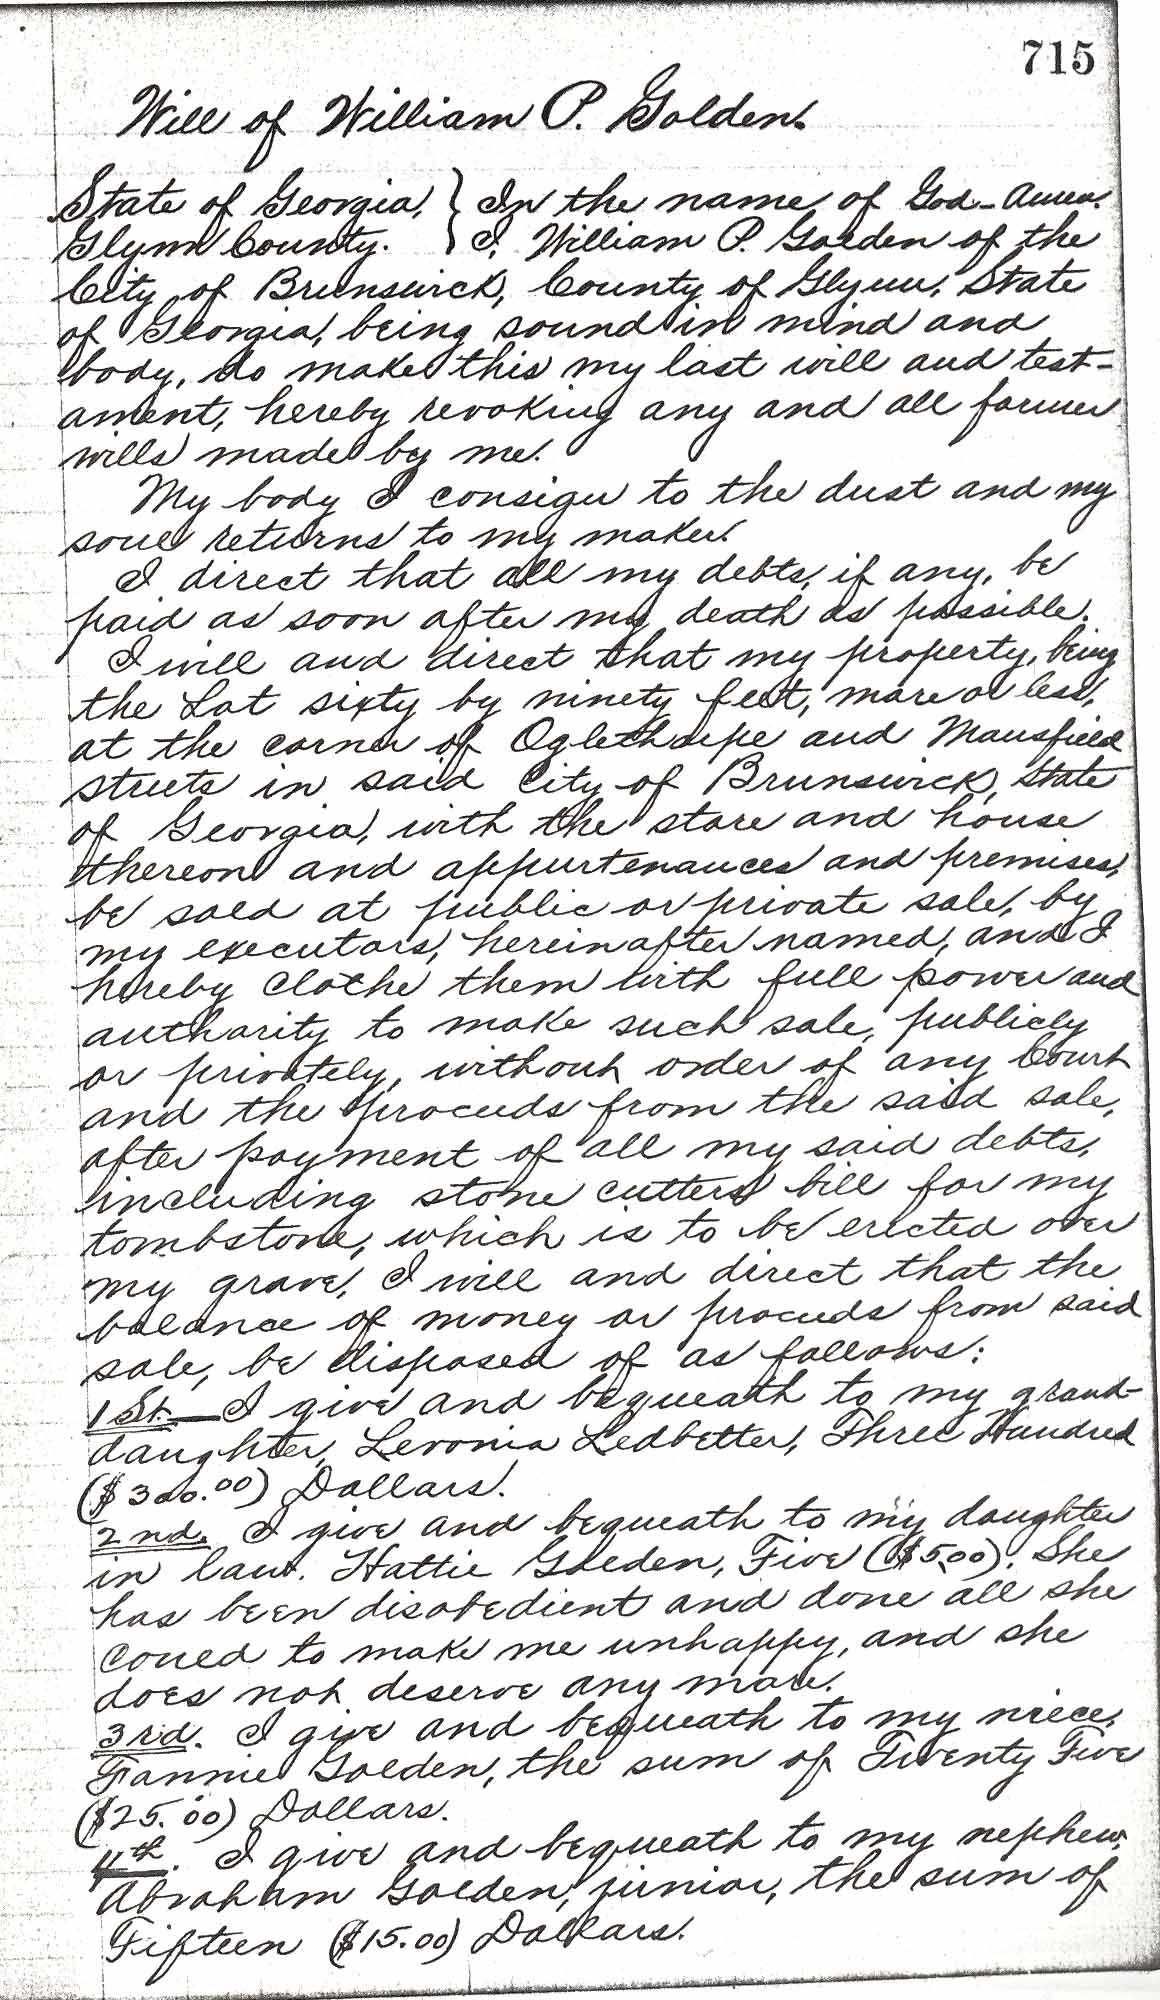 715
Will of William P. Golden.
State of Georgia, } In the name of God - Amen.
Glynn County. } I, William P. Golden of the
City of Brunswick, County of Glynn, State
of Georgia, being sound in mind and
body, do make this my last will and test-
ament, hereby revoking any and all former
wills made by me.
My body I consign to the dust and my
soul returns to my maker.
I direct that all my debts, if any, be
paid as soon after my death as possible.
I will and direct that my property, being
the Lot sixty by ninety feet, more or less,
at the corner of Oglethorpe and Mansfield
streets in said City of Brunswick, State
of Georgia, with the store and house
thereon and appurtenances and premises,
be sold at public or private sale, by
my executors, hereinafter named, and I
hereby clothe them with full power and
authority to make such sale, publicly
or privately, without order of any Court
and the proceeds from the said sale,
after payment of all my said debts,
including stone cutters bill for my
tombstone, which is to be erected over
my grave, I will and direct that the
balance of money or proceeds from said
sale, be disposed of as follows:
1st.— I give and bequeath to my grand-
daughter, Levonia Ledbetter, Three Hundred
($300.00) Dollars.
2nd. I give and bequeath to my daughter
in law. Hattie Golden, Five ($5.00). She
has been disobedient and done all she
could to make me unhappy, and she
does not deserve any more.
3rd. I give and bequeath to my niece,
Fannie Golden, the sum of Twenty Five
($25.00) Dollars.
4th. I give and bequeath to my nephew,
Abraham Golden, junior, the sum of
Fifteen ($15.00) Dollars.